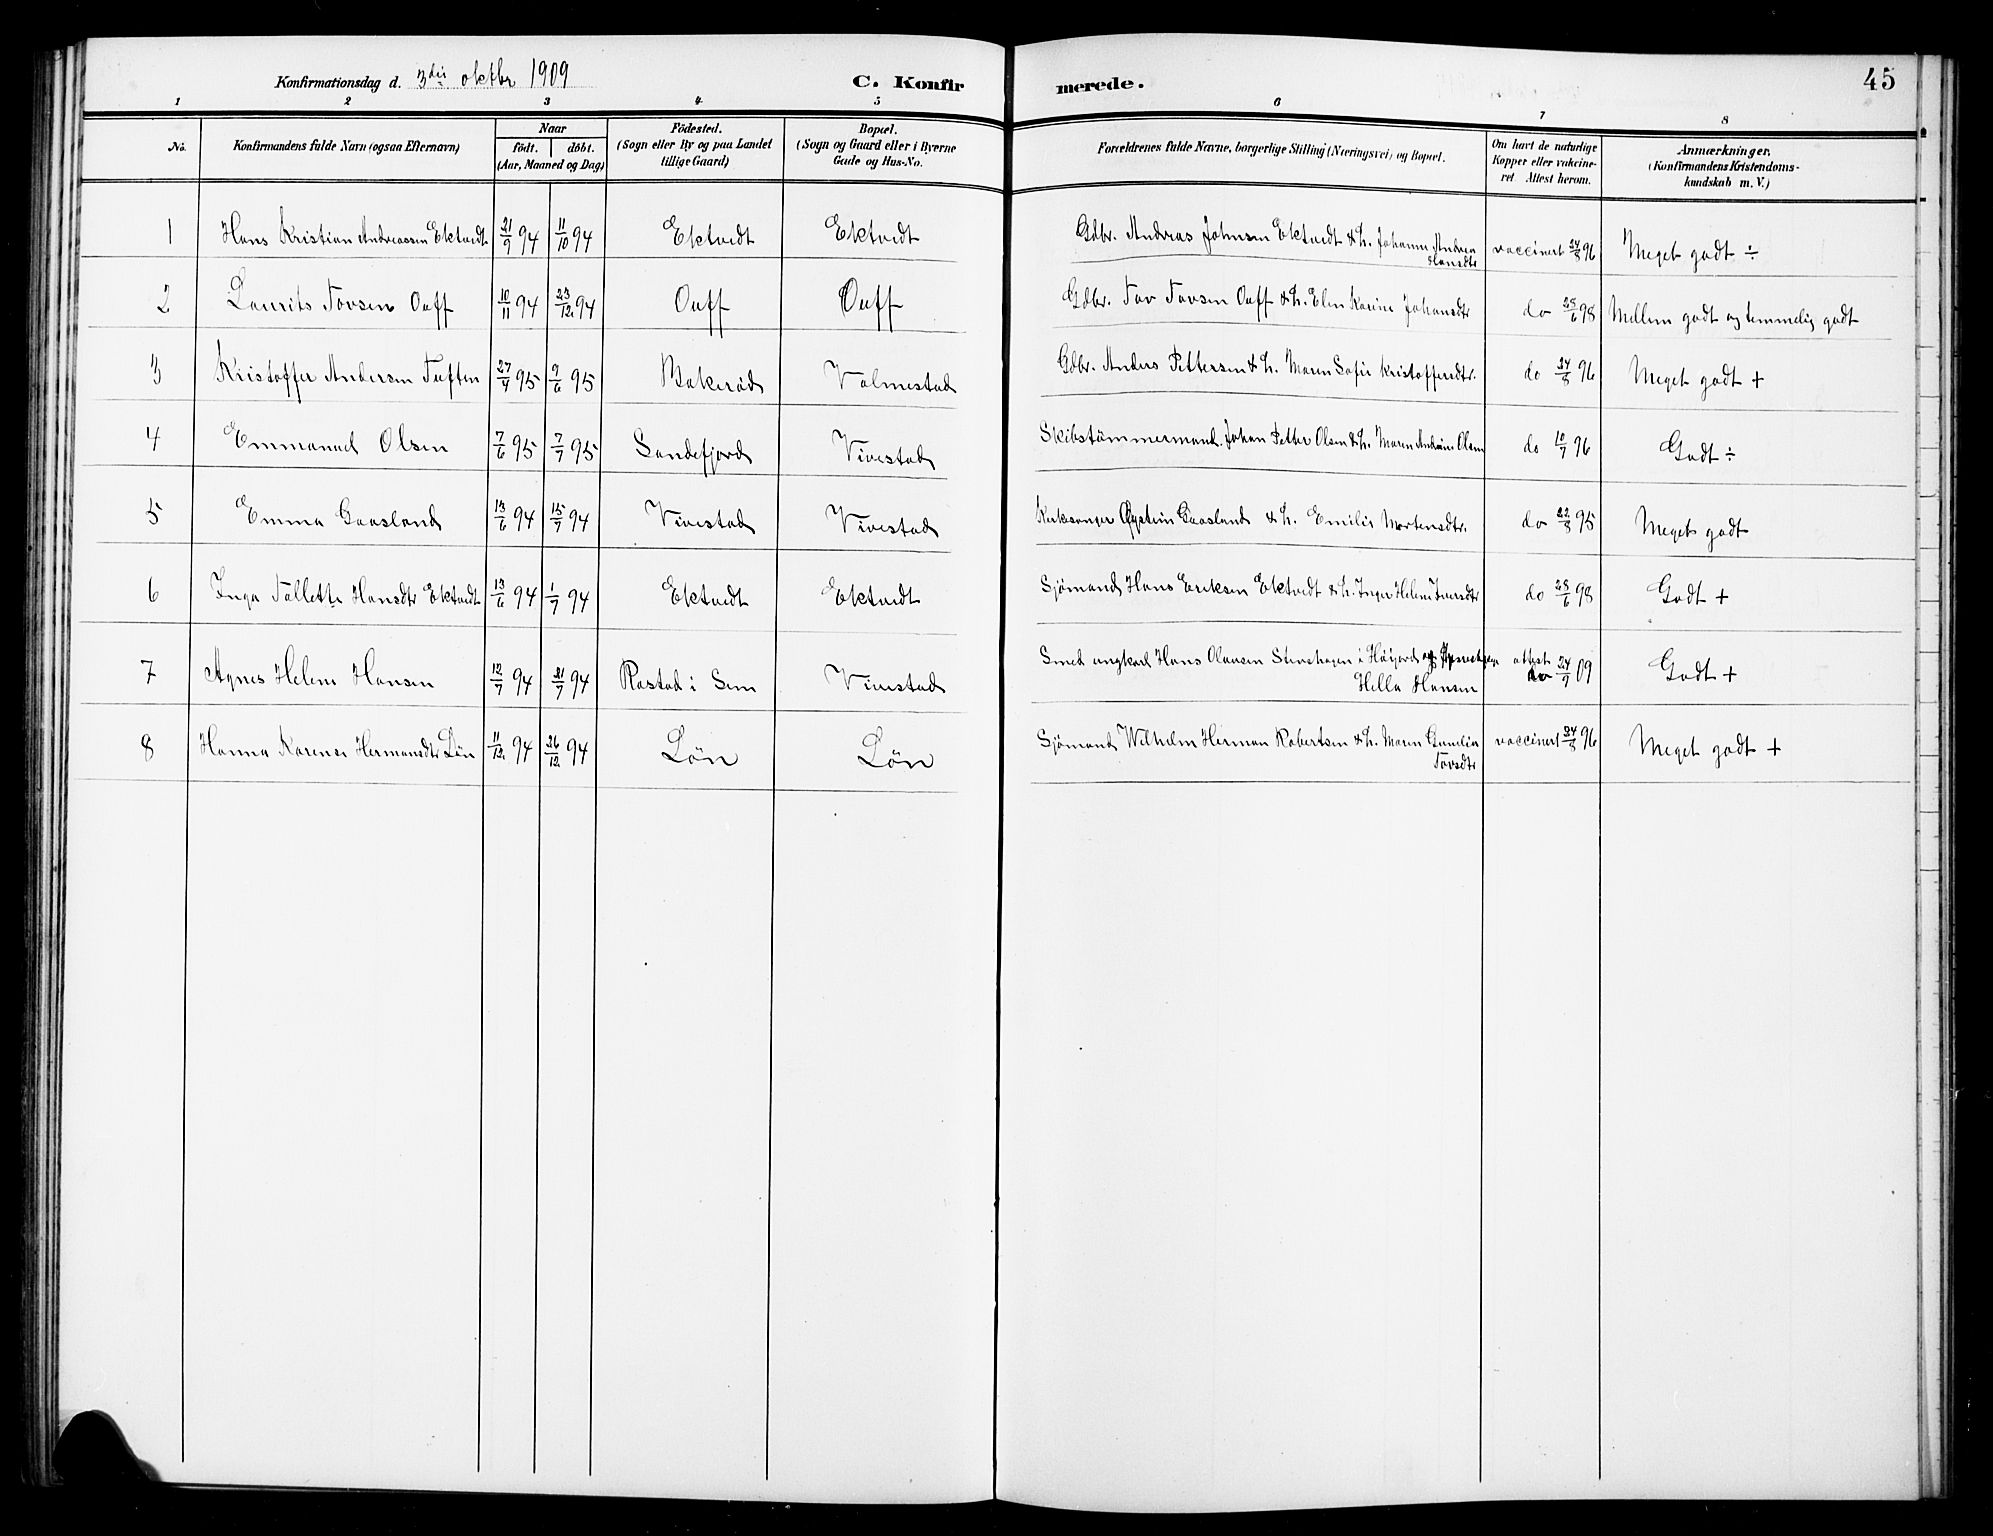 Konfirmationsdag d. 3die oktbr 1909 C. Konfirmerede. 45
1 2 3 4 5 6 7 8
No. Konfirmandens fulde Navn (ogsaa Efternavn) Naar födt. döbt. (Aar, Maaned og Dag) Födested. (Sogn eller By og paa Landet tillige Gaard) Bopæl. (Sogn og Gaard eller i Byerne Gade og Hus-No. Forældrenes fulde Navne, borgerlige Stilling (Næringsvei) og Bopæl. Om havt de naturlige Kopper eller vakcineret Attest herom. Anmærkninger. (Konfirmandens Kristendomskundskab m. V.)
1 Hans Kristian Andreassen Ektvedt 21/9 94 11/10 94 Ektvedt Ektvedt Gdbr. Andreas Johnsen Ektvedt & h. Johanne Andrea Hansdtr vaccinert 24/8 96 Meget godt ÷
2 Laurits Tovsen Ouff 10/11 94 23/12 94 Ouff Ouff Gdbr. Tov Tovsen Ouff & h. Elen Karine Johansdtr do 25/6 98 Mellem godt og temmelig godt
3 Kristoffer Andersen Tuften 27/4 95 9/6 95 Bakeröd Valmestad Gdbr. Anders Pettersen & h. Maren Sofie Kristoffersdtr. do 24/8 96 Meget godt +
4 Emmanuel Olsen 7/6 95 7/7 95 Sandefjord Vivestad Skibstömmermand Johan Petter Olsen & h. Maren Andrine Olsen do 10/7 96 Godt ÷
5 Emma Gaasland 13/6 94 15/7 94 Vivestad Vivestad Kirkesanger Øystein Gaasland & h. Emilie Mortensdtr. do 22/8 95 Meget godt
6 Inga Tallette Hansdtr Ektvedt 13/6 94 1/7 94 Ektvedt Ektvedt Sjömand Hans Eriksen Ektvedt & h. Inger Helene Iversdtr do 25/6 98 Godt +
7 Agnes Helene Hansen 12/7 94 21/7 94 Rastad i Sem Vivestad Smed ungkarl Hans Olausen i Höijord og Hella Hansen attest 24/9 09 Godt +
8 Hanna Karense Hermansdtr Lön 11/12 94 26/12 94 Lön Lön Sjömand Wilhelm Herman Robertsen & h. Maren Gunelia Tovsdtr vaccinert 24/8 96 Meget godt +